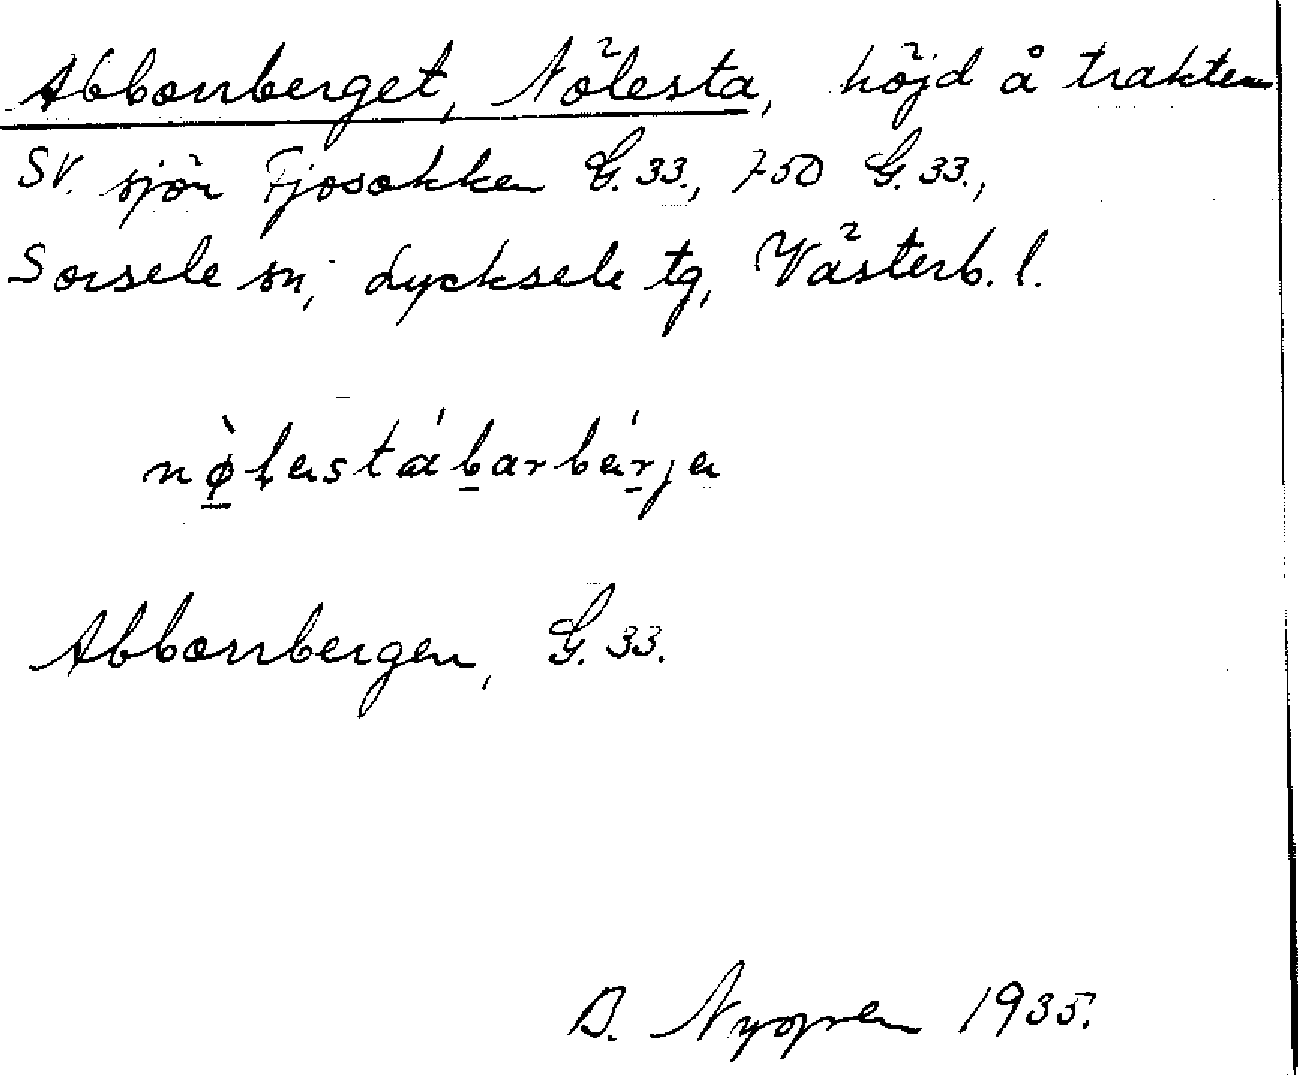 Abborrberget, Nölesta, höjd å trakten
SV. sjön Fjosokken G. 33., 750 G. 33.,
Sorsele sn, Lycksele tg, Västerb. l.
Abborrbergen, G. 33.
1935.